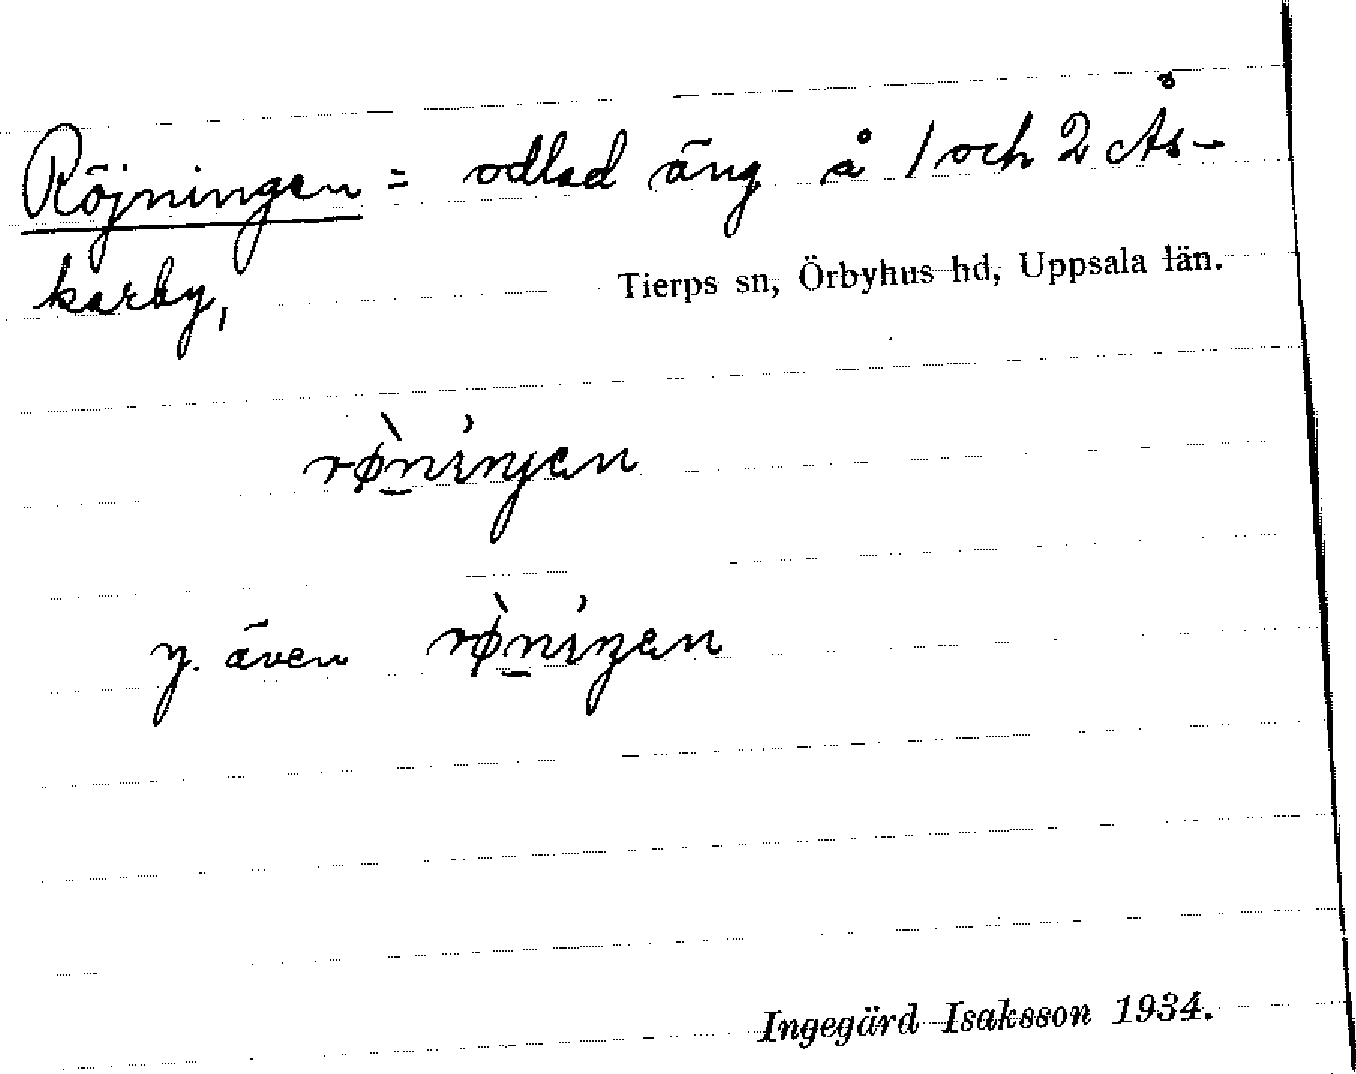 Röjningen = odlad äng å 1 och 2 Ås-
karby,
Tierps sn, Örbyhus hd, Uppsala län.
rø̀nińjen
y. även rø̀nińɡen
Ingegärd Isaksson 1934.